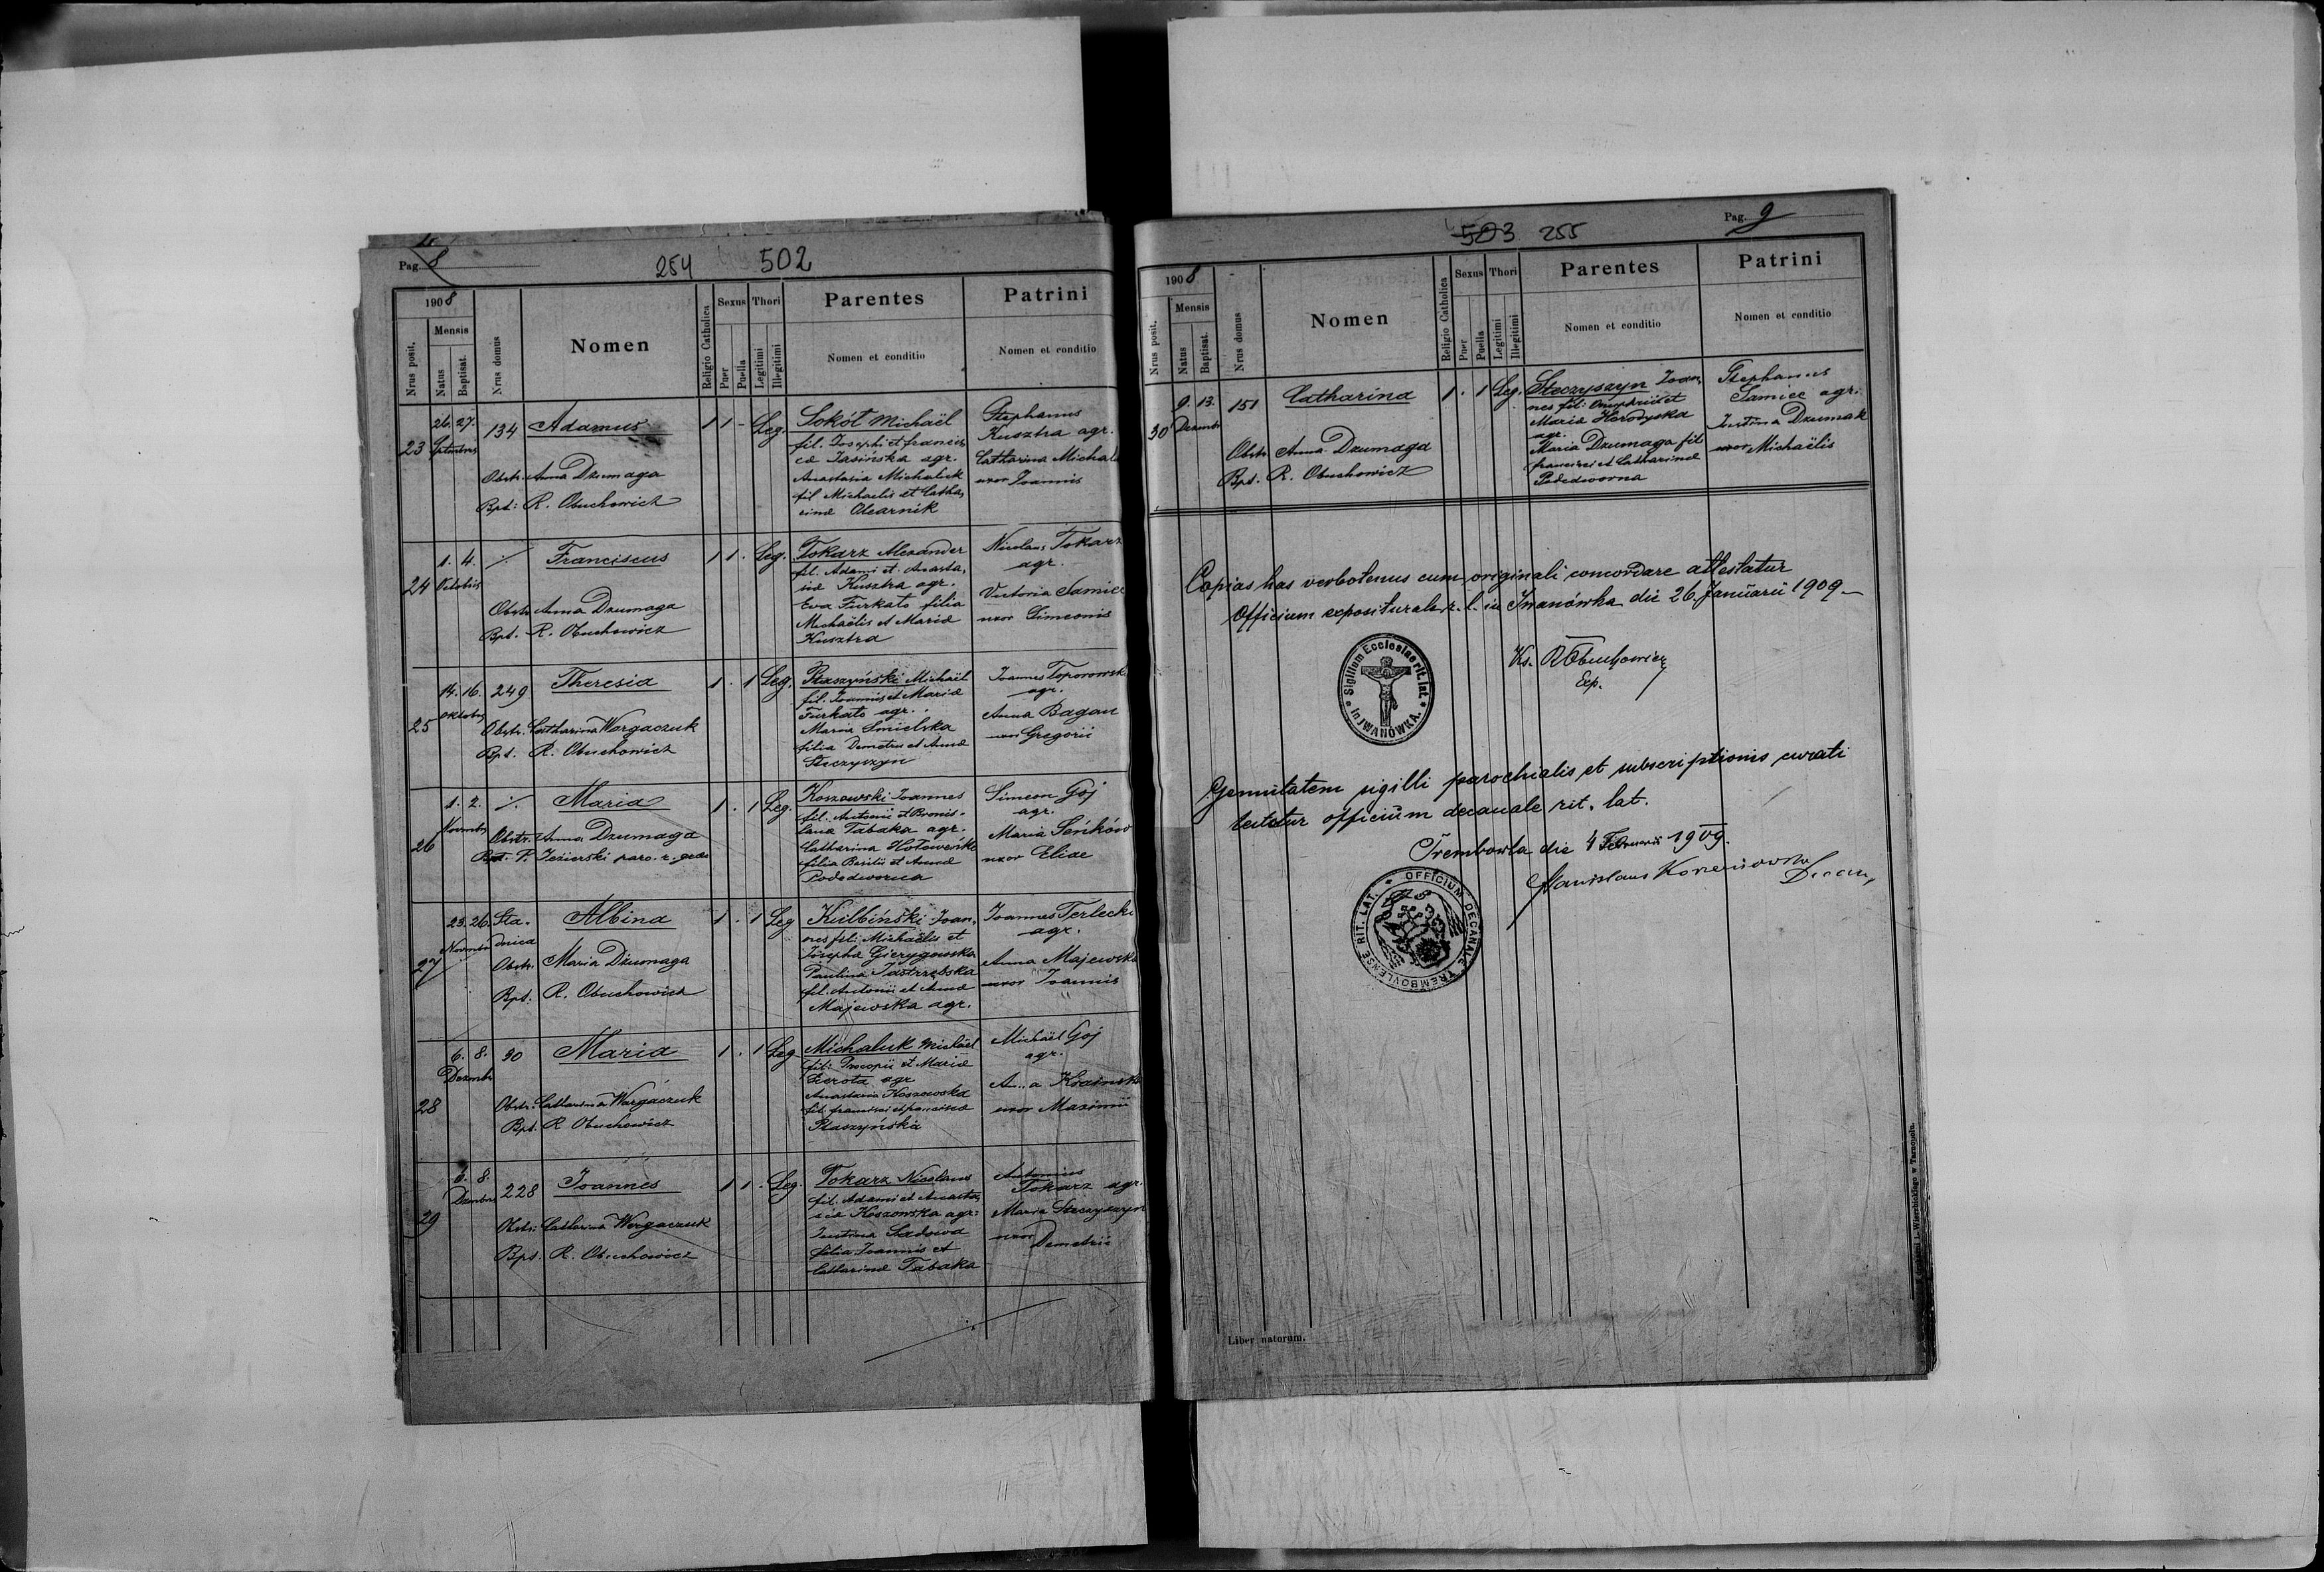 Pag. 8
254 502
1908
Mensis
Nrus posit.
Natus
Baptisat.
Nrus domus
Nomen
Religio Catholica
Sexus
Puer
Puella
Thori
Legitimi
Illegitimi
Parentes
Nomen et conditio
Patrini
Nomen et conditio
23
26. 27.
134 Adamus 1 1 - Leg.
Obstr. Anna Dzumaga
Bpt: R. Obuchowicz
Sokół Michaël
fil. Josephi et Francis,
cæ Jasińska agr.
Anastasia Michaluk
fil Michaelis et Catha,
rinæ Olearnik
Stephanus
Kusztra agr.
Catharina Michal
uxor Joannis
24
1. 4.
Octobris
·/· Franciscus 1 1 . Leg.
Obstr. Anna Dzumaga
Bpt. R. Obuchowicz
Tokarz Alexander
fil. Adami et Anasta,
iæ Kusztra agr.
Eva Furkato filia
Michaëlis et Mariæ
Kusztra
Nicolaus Tokarz
agr.
Victoria Samiec
uxor Simeonis
25
14. 16.
Oktobris
249 Theresia 1 . 1 Leg.
Obstr. Catharina Worgaczuk
Bpt. R. Obuchowicz
Ptaszyński Michaël
fil. Joannis et Mariæ
Furkato agr.
Maria Smielska
filia Demetrii et Annæ
Steczyszyn
Joannes Toporowsk
agr.
Anna Bagan
uxor Gregorii
26
1. 2.
Novembr
·/. Maria 1 . 1 Leg.
Obstr. Anna Dzumaga
Bpt. P. Jezierski paro. r. graec
Koszowski Joannes
fil. Antonii et Bronis-
lava Tabaka agr.
Catharina
filia Basilii et Annæ
Pododworna
Simeon Goj
agr.
Maria Seńków
uxor Eliae
27
23. 26.
Novembr
Sta-
dnica
Albina 1 . 1 Leg
Obstr. Maria Dzumaga
Bpt. R. Obuchowicz
Kulbiński Joan,
nes fil: Michaëlis et
Josepha Gierygowska
Paulina Jastrzębska
fil. Antonii et Annæ
Majewska agr.
Joannes Terlecki
agr.
Anna Majewska
uxor Joannis
28
6. 8.
Dezembr
30 Maria 1 . 1 Leg
Obstr. Catharina Wargaczuk
Bpt. R Obuchowicz
Michaluk Michaël
fil: Procopii et Mariæ
agr
Anastasia Koszowska
fil. Francisci et Francisca
Ptaszyńska
Michaël Goj
agr.
uxor Maximii
29
6. 8.
Dzembris
228 Joannes 1 1 . Leg.
Obstr: Catharina Worgaczuk
Bpt. R. Obuchowicz
Tokarz Nicolaus
fil. Adami et Anasta,
siæ Koszowska agr:
Justina Sadowa
filia Joannis et
Catharinæ Tabaka
Antonius
Tokarz agr.
Maria Steczyszyn
uxor
Demetrii
503 255
Pag. 9
1908
Mensis
Nrus posit.
Natus
Baptisat.
Nrus domus
Nomen
Religio Catholica
Sexus
Puer
Puella
Thori
Legitimi
Illegitimi
Parentes
Nomen et conditio
Patrini
Nomen et conditio
30
9. 13.
Dezembr
151 Catharina 1 . 1 Leg.
Obstr Anna Dzumaga
Bpt. R. Obuchowicz
Steczyszyn Joan,
nes fil: Onuphrii et
Mariæ Horodyska
agr.
Maria Dzumaga fil
Francisci et Catharinæ
Pododworna
Stephanus
Samiec agr:
Justina Dzumak
uxor Michaëlis
Copias has verbotenus cum originali concordare attestatur
Officium expositurale r. l. in Iwanówka die 26. Januarii 1909 -
Sigillum Ecclesiae rit. lat. in IWANÓWKA.
Ks. R Obuchowicz
Exp.
Genuitatem sigilli parochialis et subscriptionis curati
testatur officium decanale rit. lat.
Trembowla die 4 Februarii 1909.
Stanislaus
Decan,
OFFICIUM DECANALE TREMBOVLENSE RIT. LAT.
Liber natorum.